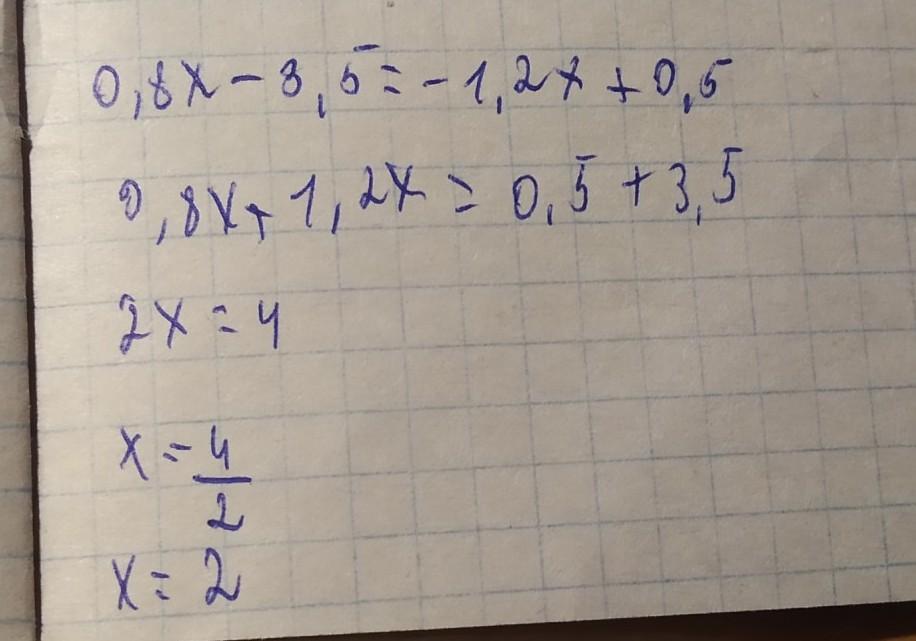 0,8x - 3,5 = -1,2x + 0,5
0,8x + 1,2x = 0,5 + 3,5
2x = 4
x = 4/2
x = 2